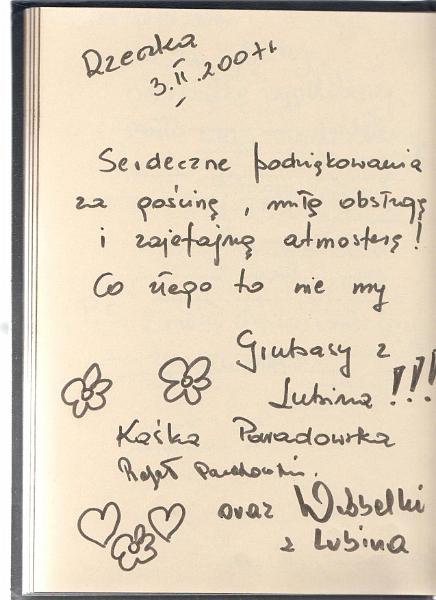 Rzeczka
3.II.2007r.
Serdeczne podziękowania
za gościnę, miłą obsługę
i zajefajną atmosferę!
Co złego to nie my
Grubasy z
Lubina!!!
Kaśka Paradowska
Rafał
oraz Wibbelki
z Lubina